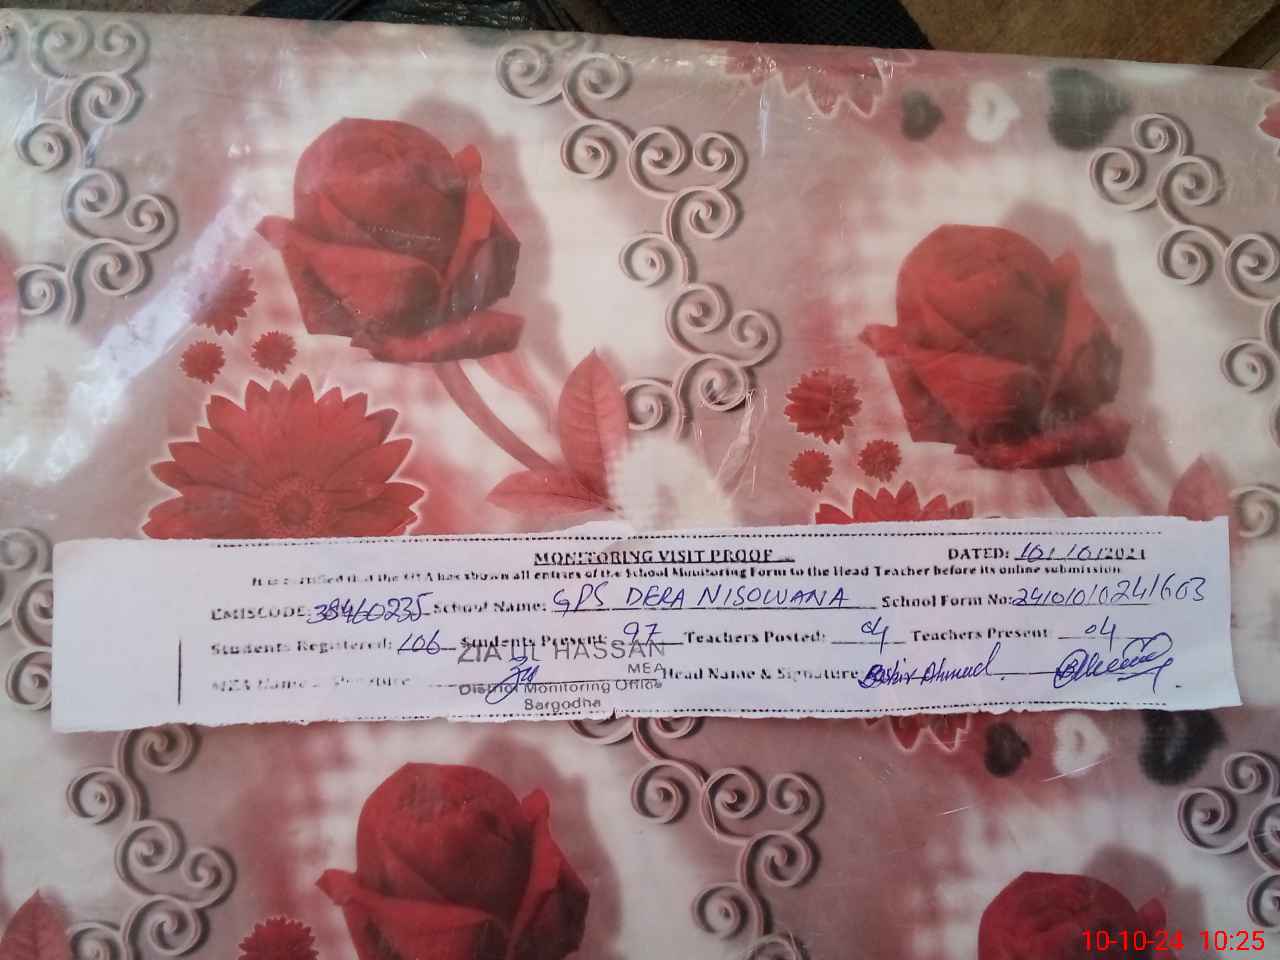 MONITORING VISIT PROOF DATED: 10/10/2024
It is certified that the MEA has shown all entries of the School Monitoring Form to the Head Teacher before its online submission
EMISCODE: 38460235 School Name: GPS DERA NISOWANA School Form No: 24101010241603
Students Registered: 106 Students Present: 97 Teachers Posted: 04 Teachers Present: 04
ZIA UL HASSAN
MEA
MEA Name & Signature Head Name & Signature Bashir Ahmad
District Monitoring Office
Sargodha
10-10-24 10:25